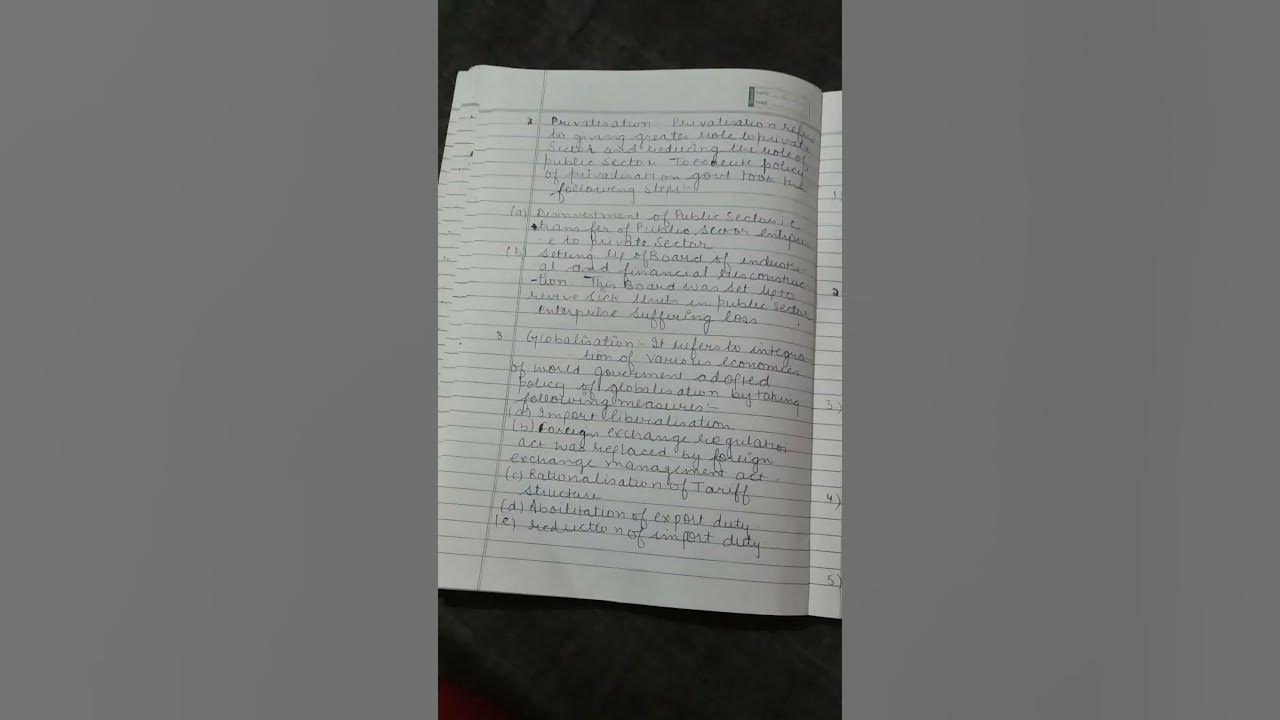 DATE
PAGE
2 Privatisation - Privatisation refers
to giving greater role to private
Sector and reducing the role of
public sector To execute policy
of privatisation govt took the
following steps:-
(a) Disinvestment of Public Sector i.e
transfer of Public sector enterpris
e to private sector
(b) setting up of Board of industri
al and financial reconstruc
-tion This Board was set up to
revive sick units in public sector
enterprise suffering loss
3 Globalisation:- It refers to integra
tion of various economies
of world goverment adopted
policy of globalisation by taking
following measures:-
(a) Import liberalisation
(b) Foreign exchange regulation
act was replaced by foreign
exchange management act.
(c) Rationalisation of Tariff
structure
(d) Aboilitation of export duty
(e) reduction of import duty
1)
2
3)
4)
5)